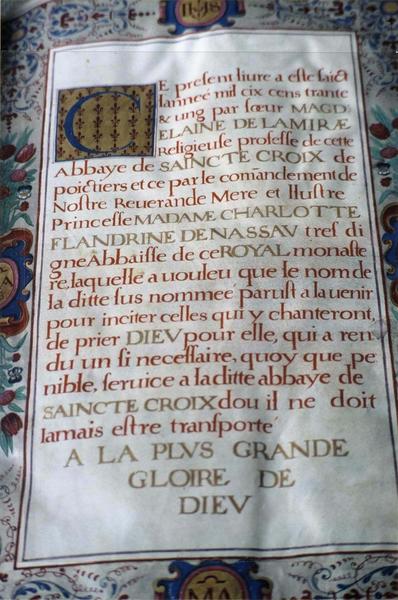 IHS
CE preſent liure a eſte faict
lanneé mil cix cens trante
& ung par ſœur MAGD
ELAINE DE LAMIRÆ
Religieuſe profeſſe de cette
Abbaye de SAINCTE CROIX de
poictiers et ce par le comādement de
Noſtre Reuerande Mere et Illuſtre
Princeſſe MADAME CHARLOTTE
FLANDRINE DE NASSAV treſ di
gne Abbaiſſe de ce ROYAL monaſte
re, laquelle a uouleu que le nom de
la ditte ſus nommeé paruſt a lauenir
pour inciter celles qui y chanteront,
de prier DIEV pour elle, qui a ren
du un ſi neceſſaire, quoy que pe
nible, ſeruice a la ditte abbaye de
SAINCTE CROIX dou il ne doit
Iamais eſtre tranſporté
A LA PLVS GRANDE
GLOIRE DE
DIEV
MA